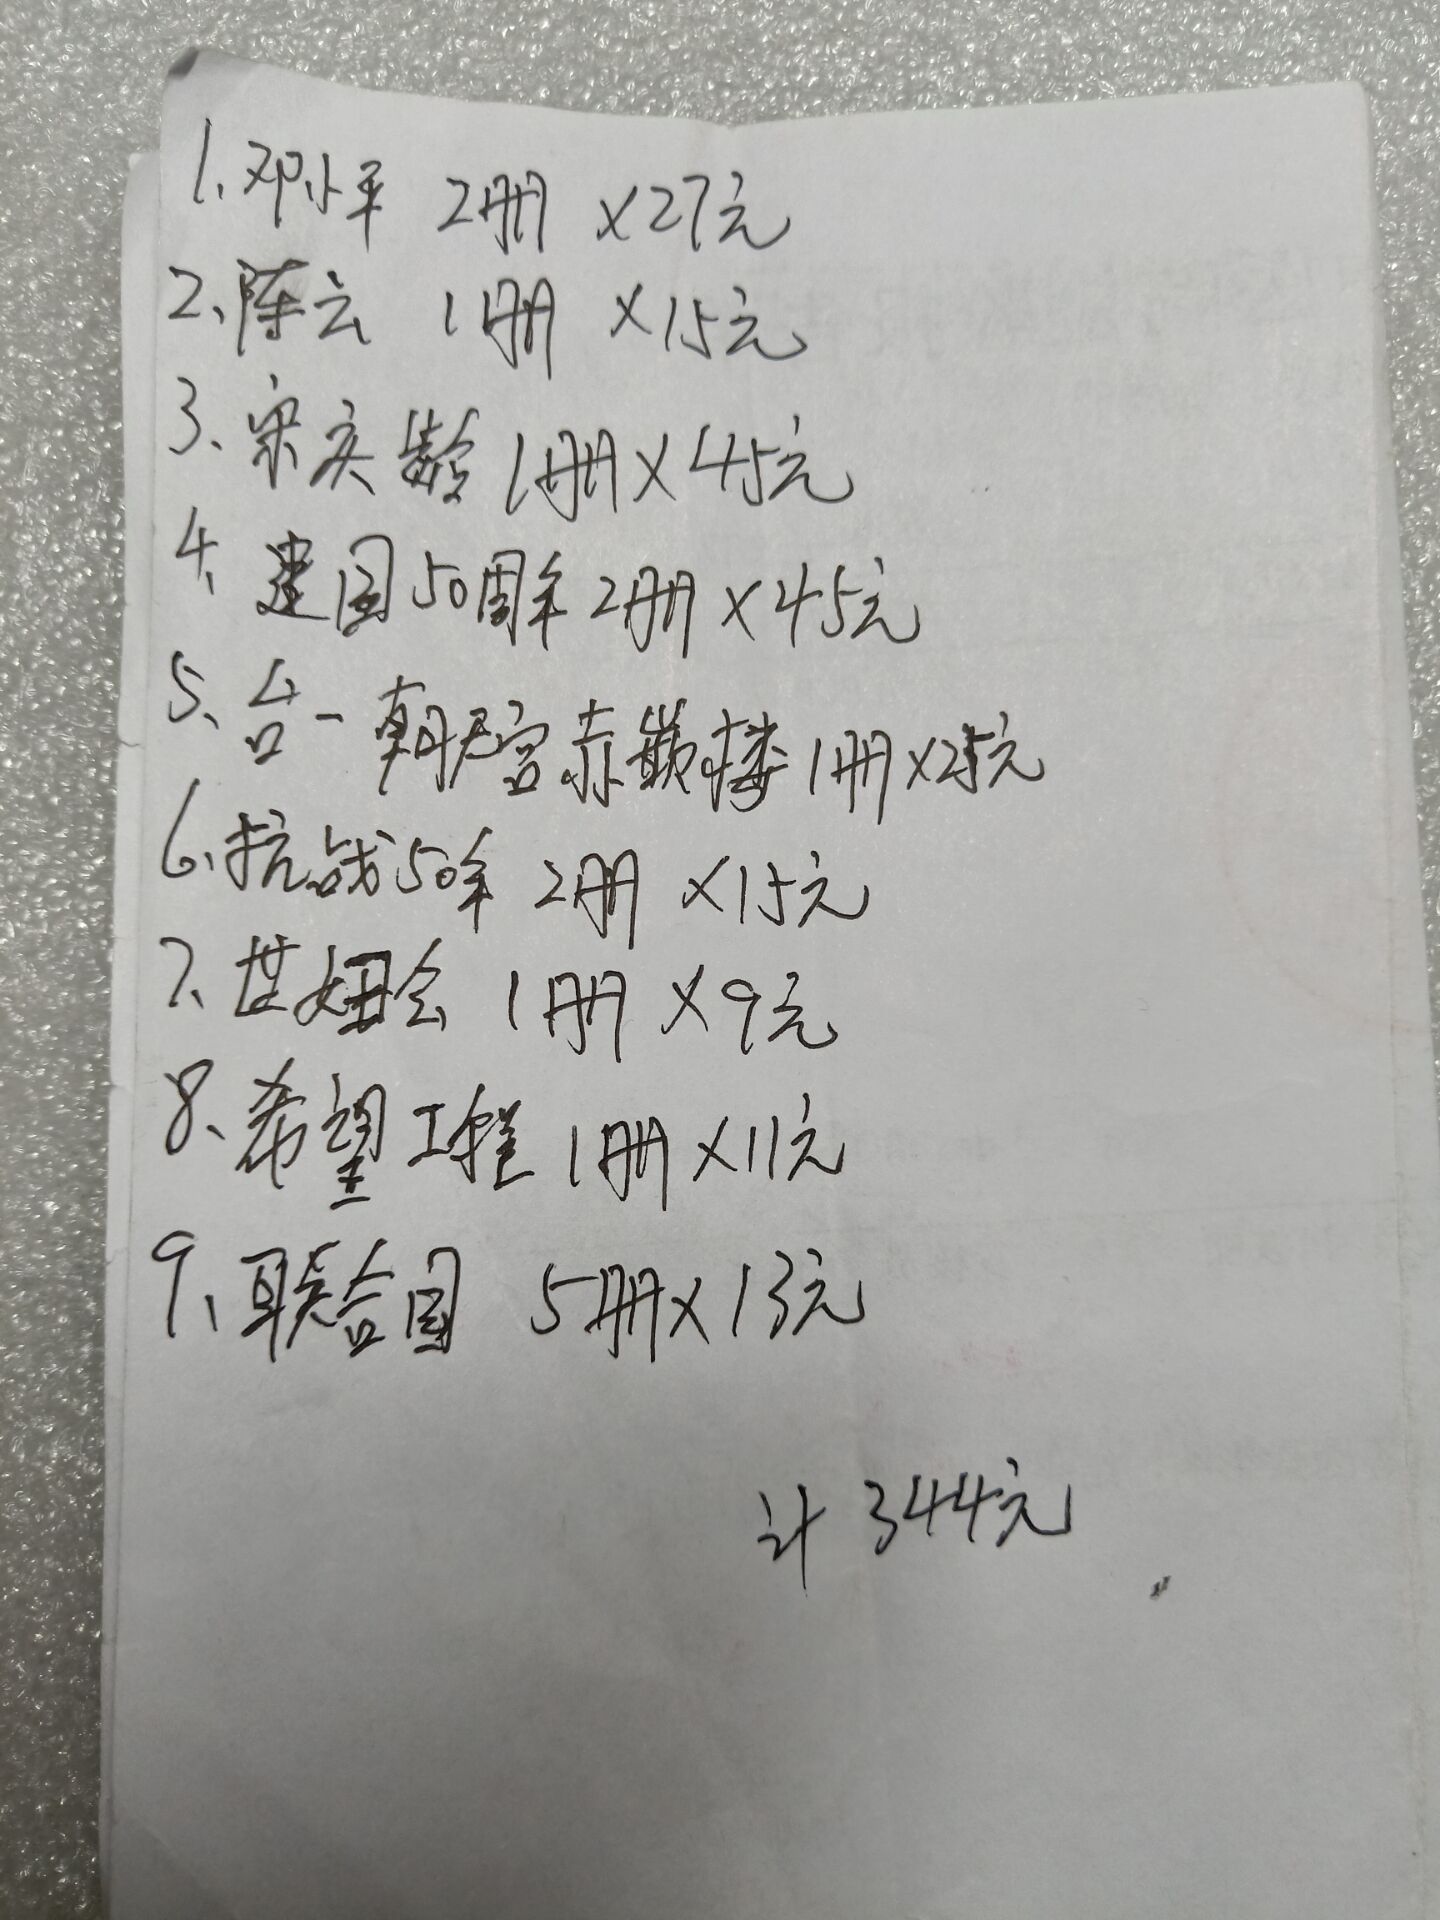 1、邓小平 2册 ×27元
2、陈云 1册 ×15元
3、宋庆龄 1册×45元
4、建国50周年2册×45元
5、台-朝天宫赤嵌楼1册×25元
6、抗战50年 2册 ×15元
7、世妇会 1册 ×9元
8、希望工程 1册×11元
9、联合国 5册×13元
计344元